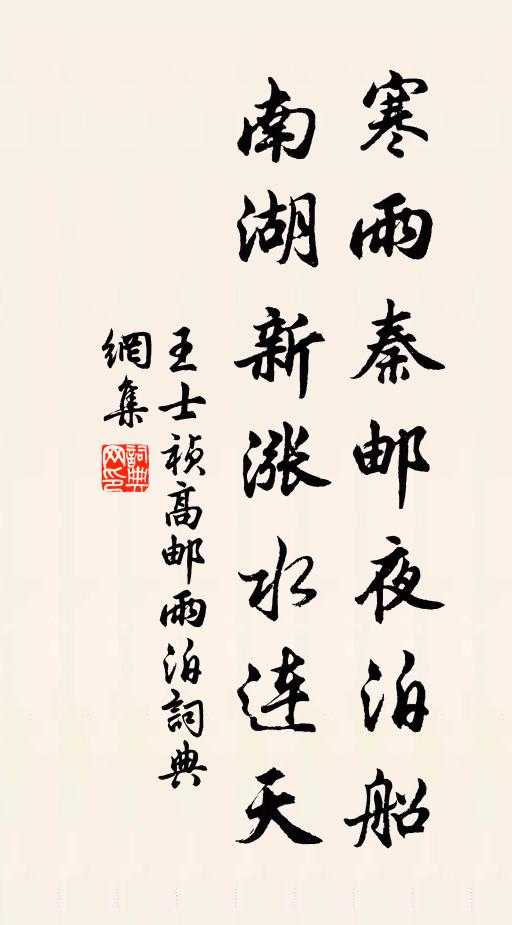 寒雨秦邮夜泊船
南湖新涨水连天
王士祯高邮雨泊詞典
網集
詞典
网印